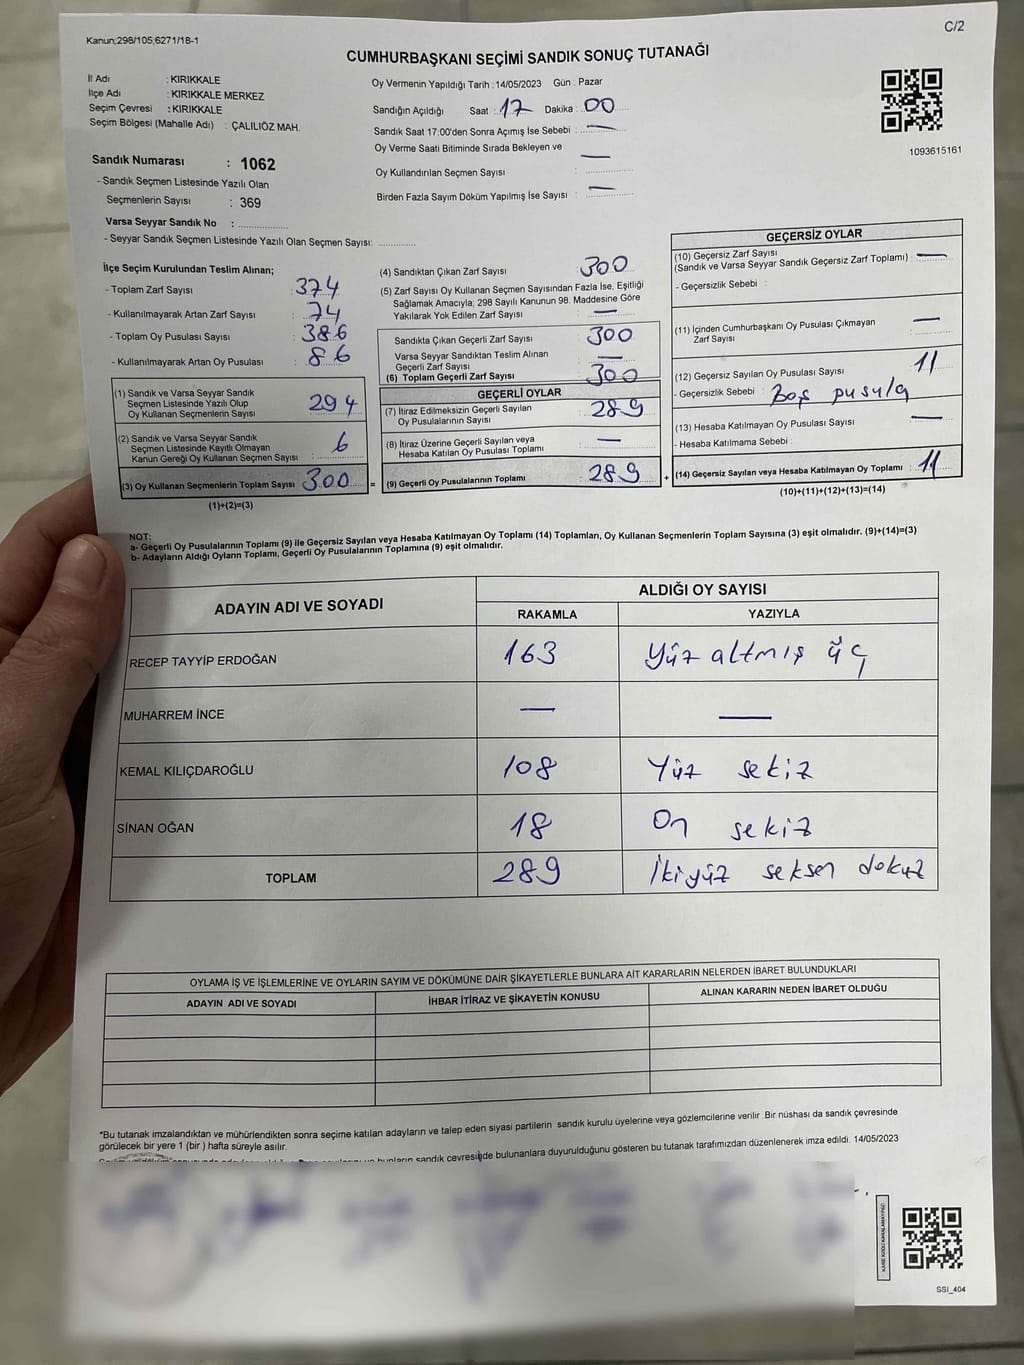 Kanun;298/105,6271/18-1
C/2
CUMHURBAŞKANI SEÇİMİ SANDIK SONUÇ TUTANAĞI
İl Adı : KIRIKKALE
İlçe Adı : KIRIKKALE MERKEZ
Seçim Çevresi : KIRIKKALE
Seçim Bölgesi (Mahalle Adı) : ÇALILIÖZ MAH.
Oy Vermenin Yapıldığı Tarih : 14/05/2023 Gün : Pazar
Sandığın Açıldığı Saat : 17 Dakika : 00
Sandık Saat 17:00'den Sonra Açımış İse Sebebi : —
Oy Verme Saati Bitiminde Sırada Bekleyen ve
Oy Kullandırılan Seçmen Sayısı : —
Birden Fazla Sayım Döküm Yapılmış İse Sayısı : —
1093615161
Sandık Numarası : 1062
- Sandık Seçmen Listesinde Yazılı Olan
Seçmenlerin Sayısı : 369
Varsa Seyyar Sandık No :
- Seyyar Sandık Seçmen Listesinde Yazılı Olan Seçmen Sayısı:
İlçe Seçim Kurulundan Teslim Alınan;
- Toplam Zarf Sayısı : 374
- Kullanılmayarak Artan Zarf Sayısı : 74
- Toplam Oy Pusulası Sayısı : 386
- Kullanılmayarak Artan Oy Pusulası : 86
(1) Sandık ve Varsa Seyyar Sandık
Seçmen Listesinde Yazılı Olup
Oy Kullanan Seçmenlerin Sayısı : 294
(2) Sandık ve Varsa Seyyar Sandık
Seçmen Listesinde Kayıtlı Olmayan
Kanun Gereği Oy Kullanan Seçmen Sayısı : 6
(3) Oy Kullanan Seçmenlerin Toplam Sayısı : 300
(1)+(2)=(3)
(4) Sandıktan Çıkan Zarf Sayısı : 300
(5) Zarf Sayısı Oy Kullanan Seçmen Sayısından Fazla İse, Eşitliği
Sağlamak Amacıyla; 298 Sayılı Kanunun 98. Maddesine Göre
Yakılarak Yok Edilen Zarf Sayısı : —
Sandıkta Çıkan Geçerli Zarf Sayısı : 300
Varsa Seyyar Sandıktan Teslim Alınan
Geçerli Zarf Sayısı : —
(6) Toplam Geçerli Zarf Sayısı : 300
GEÇERLİ OYLAR
(7) İtiraz Edilmeksizin Geçerli Sayılan
Oy Pusulalarının Sayısı : 289
(8) İtiraz Üzerine Geçerli Sayılan veya
Hesaba Katılan Oy Pusulası Toplamı : —
= (9) Geçerli Oy Pusulalarının Toplamı : 289
GEÇERSİZ OYLAR
(10) Geçersiz Zarf Sayısı
(Sandık ve Varsa Seyyar Sandık Geçersiz Zarf Toplamı) : —
- Geçersizlik Sebebi :
(11) İçinden Cumhurbaşkanı Oy Pusulası Çıkmayan
Zarf Sayısı : —
(12) Geçersiz Sayılan Oy Pusulası Sayısı : 11
- Geçersizlik Sebebi : Boş pusula
(13) Hesaba Katılmayan Oy Pusulası Sayısı : —
- Hesaba Katılmama Sebebi :
+ (14) Geçersiz Sayılan veya Hesaba Katılmayan Oy Toplamı : 11
(10)+(11)+(12)+(13)=(14)
NOT:
a- Geçerli Oy Pusulalarının Toplamı (9) ile Geçersiz Sayılan veya Hesaba Katılmayan Oy Toplamı (14) Toplamları, Oy Kullanan Seçmenlerin Toplam Sayısına (3) eşit olmalıdır. (9)+(14)=(3)
b- Adayların Aldığı Oyların Toplamı, Geçerli Oy Pusulalarının Toplamına (9) eşit olmalıdır.
ADAYIN ADI VE SOYADI
ALDIĞI OY SAYISI
RAKAMLA YAZIYLA
RECEP TAYYİP ERDOĞAN 163 Yüz altmış üç
MUHARREM İNCE — —
KEMAL KILIÇDAROĞLU 108 Yüz sekiz
SİNAN OĞAN 18 On sekiz
TOPLAM 289 İkiyüz seksen dokuz
OYLAMA İŞ VE İŞLEMLERİNE VE OYLARIN SAYIM VE DÖKÜMÜNE DAİR ŞİKAYETLERLE BUNLARA AİT KARARLARIN NELERDEN İBARET BULUNDUKLARI
ADAYIN ADI VE SOYADI İHBAR İTİRAZ VE ŞİKAYETİN KONUSU ALINAN KARARIN NEDEN İBARET OLDUĞU
*Bu tutanak imzalandıktan ve mühürlendikten sonra seçime katılan adayların ve talep eden siyasi partilerin sandık kurulu üyelerine veya gözlemcilerine verilir .Bir nüshası da sandık çevresinde
görülecek bir yere 1 (bir ) hafta süreyle asılır.
bunların sandık çevresinde bulunanlara duyurulduğunu gösteren bu tutanak tarafımızdan düzenlenerek imza edildi. 14/05/2023
SSI_404